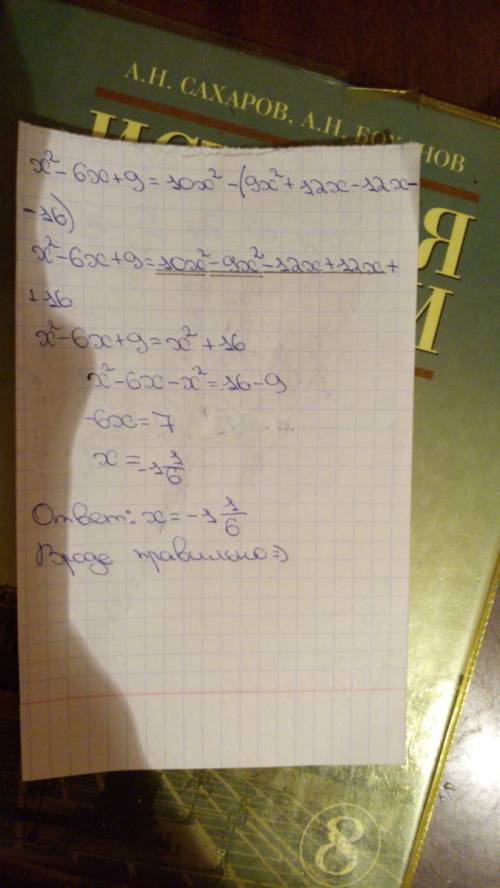 А.Н. САХАРОВ, А.Н. БОХАНОВ
x² - 6x + 9 = 10x² - (9x² + 12x - 12x -
- 16)
x² - 6x + 9 = 10x² - 9x² - 12x + 12x +
+ 16
x² - 6x + 9 = x² + 16
x² - 6x - x² = 16 - 9
-6x = 7
x = -1 1/6
Ответ: x = -1 1/6
Вроде правильно =)
8